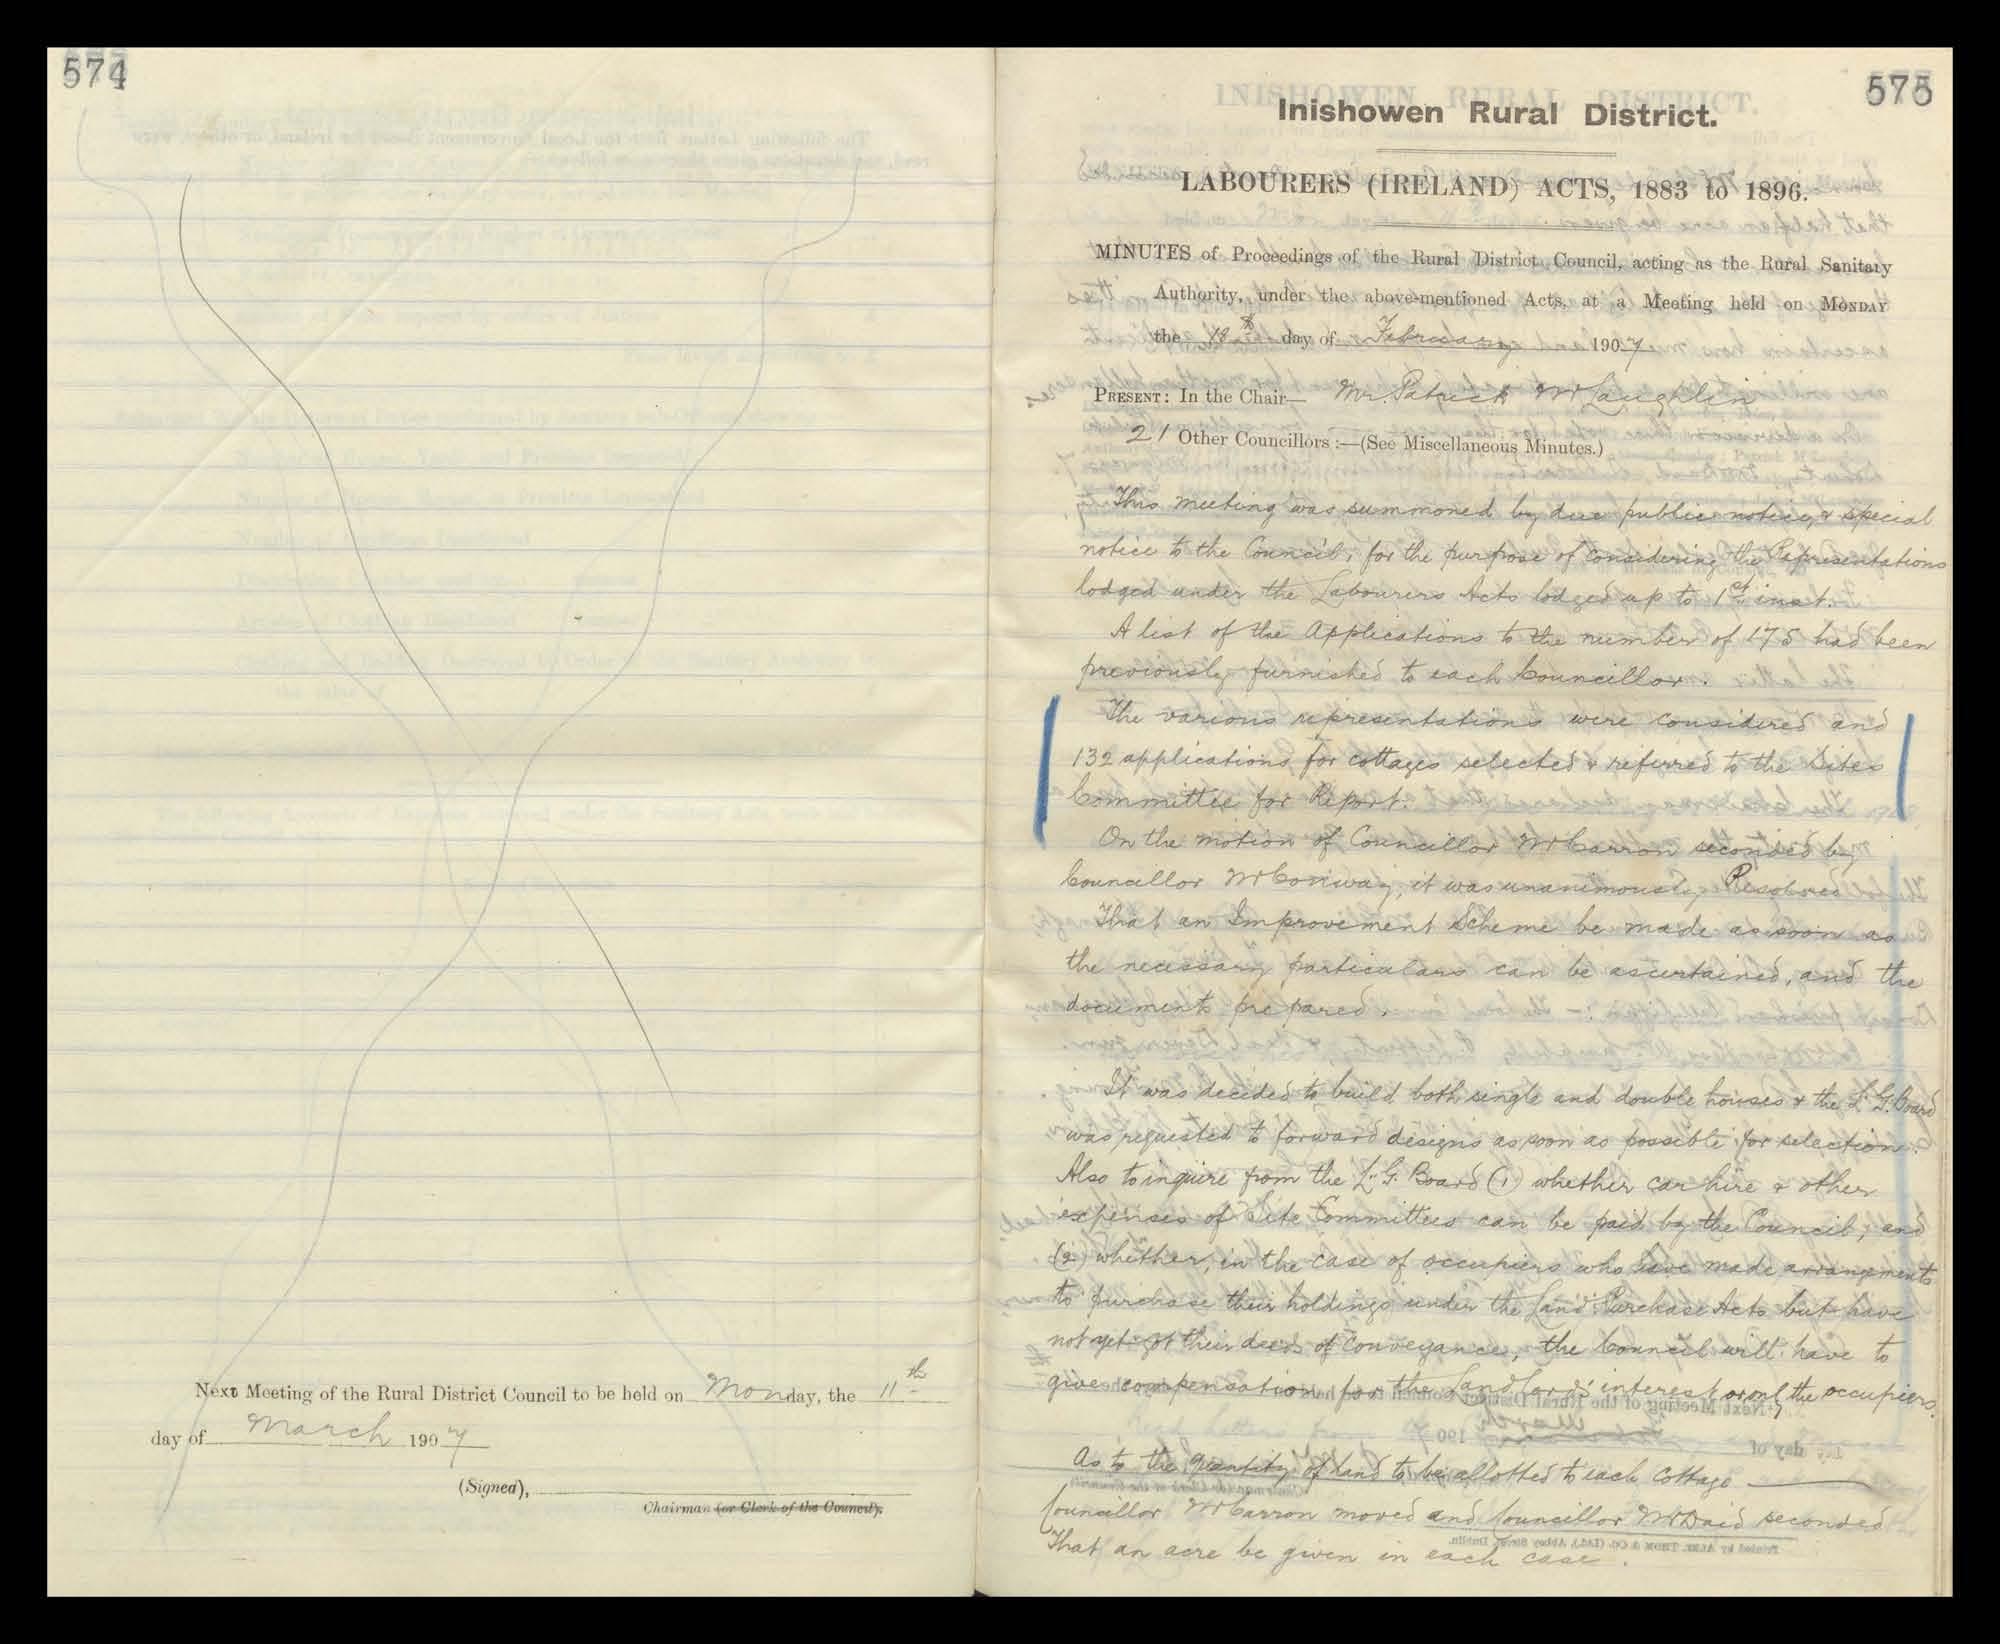 574
Next Meeting of the Rural District Council to be held on Monday, the 11th
day of March 1907
(Signed),
Chairman (or Clerk of the Council).
575
Inishowen Rural District.
LABOURERS (IRELAND) ACTS, 1883 to 1896.
MINUTES of Proceedings of the Rural District Council, acting as the Rural Sanitary
Authority, under the above-mentioned Acts, at a Meeting held on MONDAY
the 18th day of February 1907
PRESENT: In the Chair— Mr. Patrick McLaughlin
21 Other Councillors:—(See Miscellaneous Minutes.)
This meeting was summoned by due public notice, & special
notice to the Council, for the purpose of considering the Representations
lodged under the Labourers Acts lodged up to 1st inst.
A list of the Applications to the number of 175 had been
previously furnished to each Councillor.
The various representations were considered and
132 applications for cottages selected & referred to the Sites
Committee for Report.
On the motion of Councillor McCarron seconded by
Councillor McConway, it was unanimously Resolved
That an Improvement Scheme be made as soon as
the necessary particulars can be ascertained, and the
documents prepared.
It was decided to build both single and double houses & the L. G. Board
was requested to forward designs as soon as possible for selection.
Also to inquire from the L. G. Board (1) whether car hire & other
expenses of Site Committees can be paid by the Council; and
(2) whether, in the case of occupiers who have made arrangements
to purchase their holdings under the Land Purchase Acts but have
not yet got their deeds of Conveyance, the Council will have to
give compensation for the Landlords' interest or only the occupiers.
As to the quantity of land to be allotted to each Cottage
Councillor McCarron moved and Councillor McDaid seconded
That an acre be given in each case.